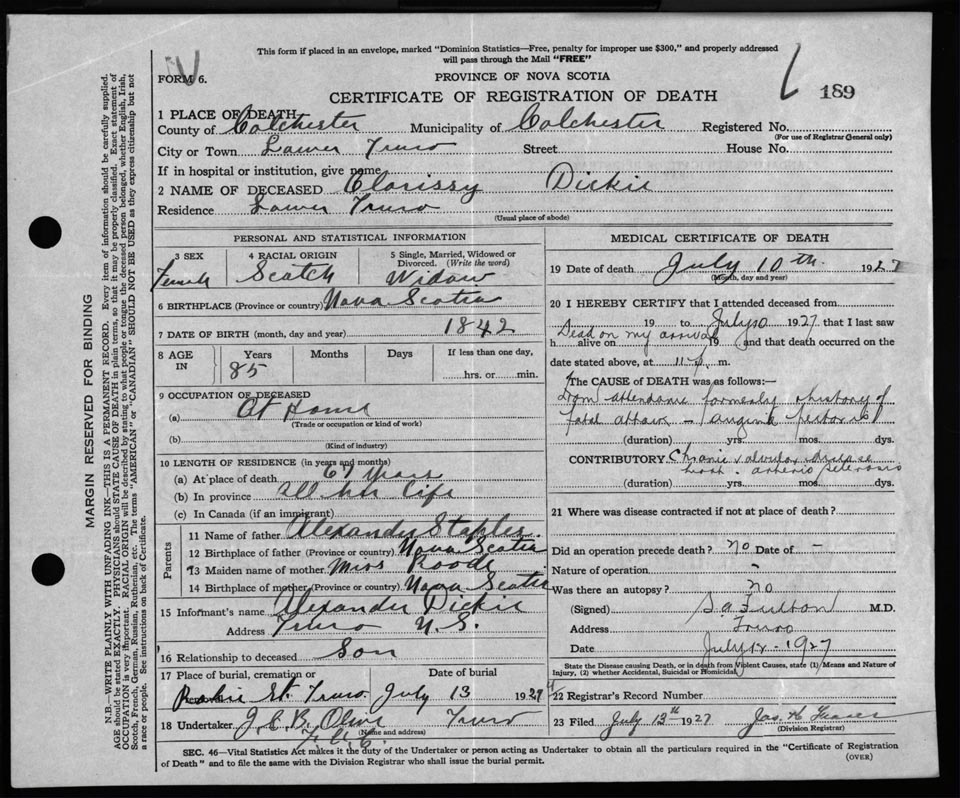 This form if placed in an envelope, marked "Dominion Statistics—Free, penalty for improper use $300," and properly addressed
will pass through the Mail "FREE"
FORM 6.
PROVINCE OF NOVA SCOTIA
CERTIFICATE OF REGISTRATION OF DEATH
189
1 PLACE OF DEATH
County of Colchester Municipality of Colchester Registered No.
(For use of Registrar General only)
City or Town Lower Truro Street House No.
If in hospital or institution, give name
2 NAME OF DECEASED Clarissy Dickie
Residence Lower Truro
(Usual place of abode)
PERSONAL AND STATISTICAL INFORMATION
3 SEX Female
4 RACIAL ORIGIN Scotch
5 Single, Married, Widowed or Divorced. (Write the word) Widow
6 BIRTHPLACE (Province or country) Nova Scotia
7 DATE OF BIRTH (month, day and year) 1842
8 AGE IN Years 85 Months Days If less than one day, hrs. or min.
9 OCCUPATION OF DECEASED
(a) At Home
(Trade or occupation or kind of work)
(b)
(Kind of industry)
10 LENGTH OF RESIDENCE (in years and months)
(a) At place of death 67 years
(b) In province all her life
(c) In Canada (if an immigrant)
Parents
11 Name of father Alexander Staples.
12 Birthplace of father (Province or country) Nova Scotia
13 Maiden name of mother Miss Roode
14 Birthplace of mother (Province or country) Nova Scotia
15 Informant's name Alexander Dickie
Address Truro N.S.
16 Relationship to deceased Son
17 Place of burial, cremation or Date of burial
St. Truro. July 13 1927
18 Undertaker J.C.B. Olive Truro
(Name and address)
MEDICAL CERTIFICATE OF DEATH
19 Date of death July 10th. 1927
(Month, day and year)
20 I HEREBY CERTIFY that I attended deceased from
19 to July 10 1927 that I last saw
Dead on my arrival
h alive on 19 and that death occurred on the
date stated above, at 11 m.
The CAUSE of DEATH was as follows:—
From attendance formerly & history of
fatal attack – angina pectoris
(duration) yrs. mos. dys.
CONTRIBUTORY Chronic valvular disease
heart. arterio sclerosis
(duration) yrs. mos. dys.
21 Where was disease contracted if not at place of death?
Did an operation precede death? no Date of –
Nature of operation –
Was there an autopsy? No
(Signed) Fulton M.D.
Address Truro
Date July 12 - 1927
State the Disease causing Death, or in death from Violent Causes, state (1) Means and Nature of
Injury, (2) whether Accidental, Suicidal or Homicidal
22 Registrar's Record Number
23 Filed July 13th 1927 Jas. H. Fraser
(Division Registrar)
SEC. 46—Vital Statistics Act makes it the duty of the Undertaker or person acting as Undertaker to obtain all the particulars required in the "Certificate of Registration
of Death" and to file the same with the Division Registrar who shall issue the burial permit.
(OVER)
MARGIN RESERVED FOR BINDING
N.B.—WRITE PLAINLY WITH UNFADING INK—THIS IS A PERMANENT RECORD. Every item of information should be carefully supplied.
AGE should be stated EXACTLY. PHYSICIANS should STATE CAUSE OF DEATH in plain terms, so that it may be properly classified. Exact statement of
OCCUPATION is very important. RACIAL ORIGIN will be described by stating to what people or tongue the deceased person belonged, whether English, Irish,
Scotch, French, German, Russian, Ruthenian, etc. The terms "AMERICAN" or "CANADIAN" SHOULD NOT BE USED as they express citizenship but not
a race or people. See instructions on back of Certificate.